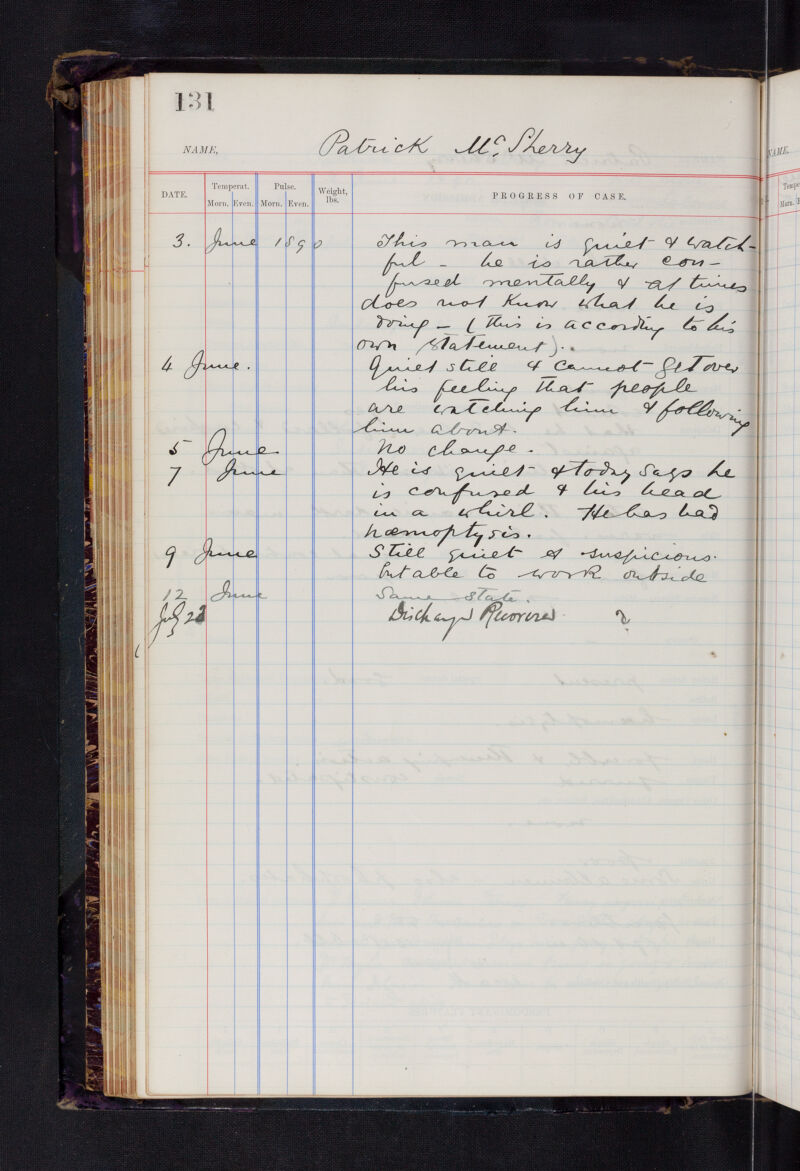 131
NAME, Patrick Mc. Sherry
DATE. Temperat. Pulse. Weight, lbs. PROGRESS OF CASE.
Morn. Even. Morn. Even.
3. June 1890 This man is quiet & watch-
ful - he is rather con-
fused mentally & at times
does not know what he is
doing - (this is according to his
own statement).
4 June. Quiet still & cannot get over
his feeling that people
are watching him & following
him about.
5 June No change.
7 June He is quiet & today says he
is confused & his head
in a whirl. He has had
hæmoptysis.
9 June Still quiet & suspicious.
but able to work outside
12 June Same state.
July 22 Discharged Recovered ?
NAME.
Morn.